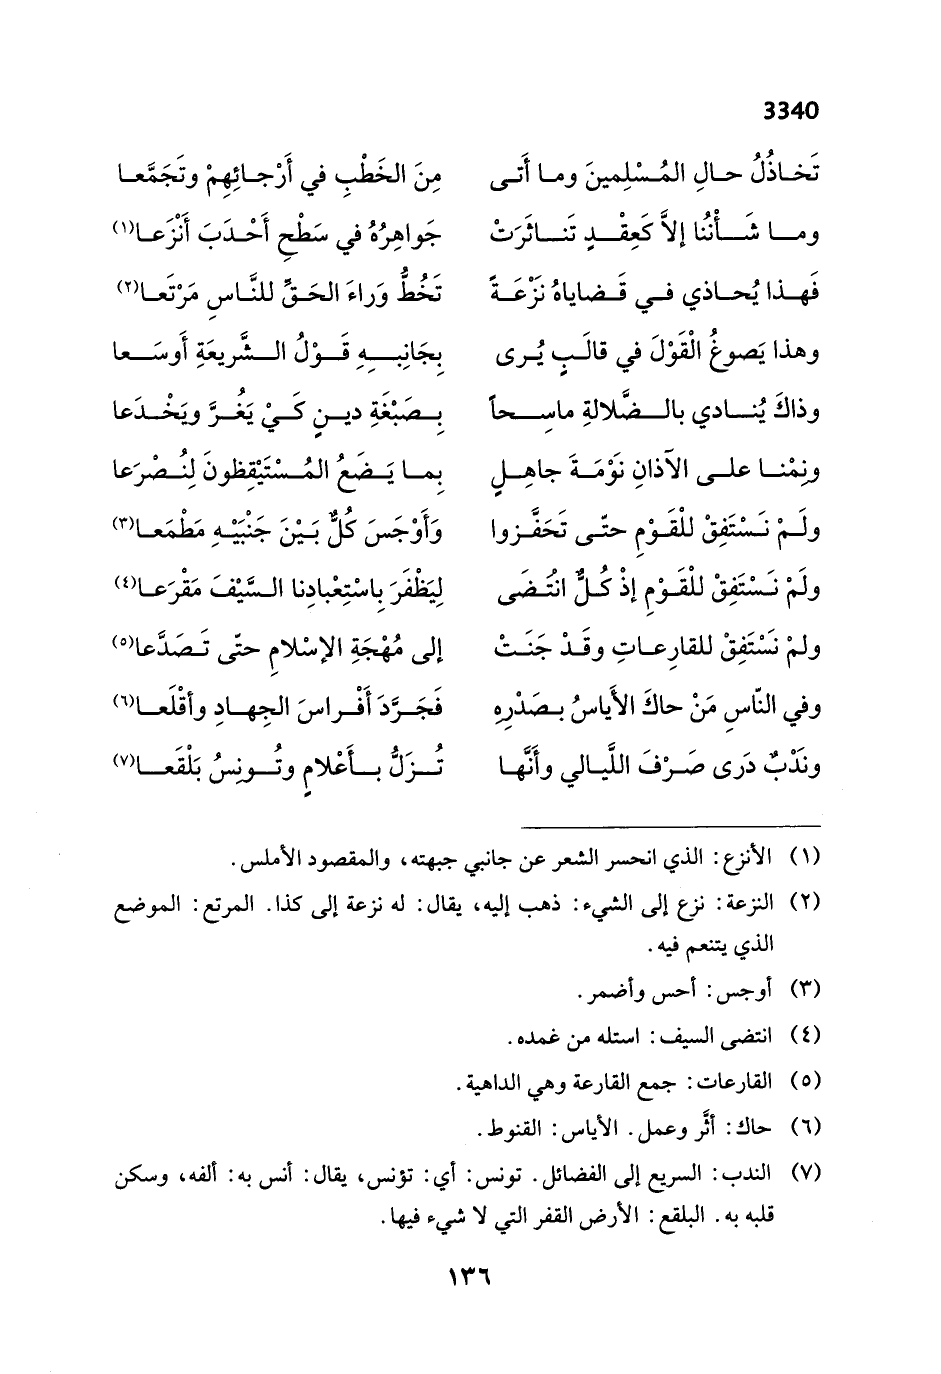 3340
تَخـاذُلُ حـالِ المُـسْلِمينَ ومـا أَتـى مِنَ الخَطْبِ في أَرْجـائِهِمْ وتَجَمَّعـا
ومـا شَـأْنُنا إلاَّ كَعِقْـدٍ تَنـاثَرَتْ جَواهِرُهُ في سَطْحِ أَحْدَبَ أَنْزَعـا(١)
فَهـذا يُحـاذي فـي قَـضاياهُ نَزْعَـةً تَخُطُّ وَراءَ الحَـقِّ للنَّـاسِ مَرْتَعـا(٢)
وهذا يَصوغُ الْقَوْلَ في قالَـبٍ يُـرى بِجَانِبـهِ قَـوْلُ الـشَّريعَةِ أَوسَـعا
وذاكَ يُنـادي بالـضَّلالةِ ماسِـحاً بِـصَبْغَةِ ديـنٍ كَـيْ يَغُـرَّ ويَخْـدَعا
ونِمْنـا علـى الآذانِ نَوْمَـةَ جاهِـلٍ بِمـا يَـضَعُ المُـسْتَيْقِظونَ لِنُـصْرَعا
ولَـمْ نَـسْتَفِقْ للْقَـوْمِ حتّـى تَحَفَّـزوا وَأَوْجَسَ كُلٌّ بَـيْنَ جَنْبَيْـهِ مَطْمَعـا(٣)
ولَمْ نَـسْتَفِقْ للقَـوْمِ إذْ كُـلٌّ انْتُـضَى لِيَظْفَرَ بِاسْتِعْبادِنا الـسَّيْفَ مَقْرَعـا(٤)
ولمْ نَسْتَفِقْ للقارِعـاتِ وقَـدْ جَنَـتْ إلى مُهْجَةِ الإسْلامِ حتّى تَـصَدَّعا(٥)
وفي النّاسِ مَنْ حاكَ الأَياسُ بِـصَدْرِهِ فَجَـرَّدَ أَفْـراسَ الجِهـادِ وأَقْلَعـا(٦)
ونَدْبٌ دَرى صَـرْفَ اللَّيـالي وأَنَّهـا تُـزَلُّ بِـأَعْلامٍ وتُـونِسُ بَلْقَعـا(٧)
(١) الأنزع: الذي انحسر الشعر عن جانبي جبهته، والمقصود الأملس.
(٢) النزعة: نزع إلى الشيء: ذهب إليه، يقال: له نزعة إلى كذا. المرتع: الموضع
الذي يتنعم فيه.
(٣) أوجس: أحس وأضمر.
(٤) انتضى السيف: استله من غمده.
(٥) القارعات: جمع القارعة وهي الداهية.
(٦) حاك: أثَّر وعمل. الأياس: القنوط.
(٧) الندب: السريع إلى الفضائل. تونس: أي: تؤنس، يقال: أنس به: ألفه، وسكن
قلبه به. البلقع: الأرض القفر التي لا شيء فيها.
١٣٦